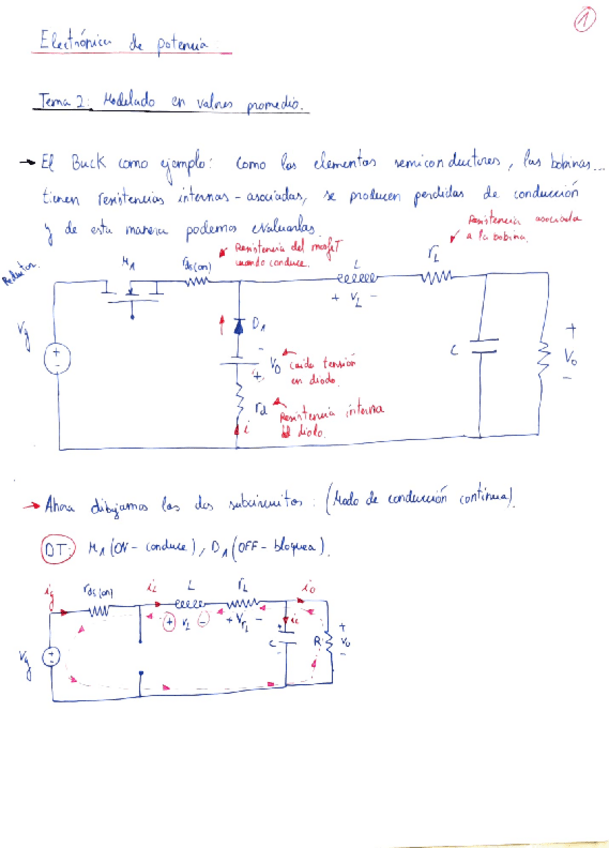 1
Electrónica de potencia
Tema 2: Modelado en valores promedio.
→ El Buck como ejemplo: Como los elementos semiconductores, las bobinas...
tienen resistencias internas-asociadas, se producen perdidas de conducción
y de esta manera podemos evaluarlas.
Resistencia asociada
a la bobina.
Resistencia del mosfeT
cuando conduce.
Reductor.
M1
rds(on)
L
rL
+ VL -
Vg
+
-
D1
-
VD
+
Caida tensión
en diodo.
rd
Resistencia interna
del diodo.
i
C
+
Vo
-
→ Ahora dibujamos los dos subcircuitos: (Modo de conducción continua).
DT: M1 (ON - conduce), D1 (OFF - bloquea).
ig
rds(on)
iL
L
rL
io
+ VL -
+ VrL -
ic
Vg
+
-
C
R
+
Vo
-